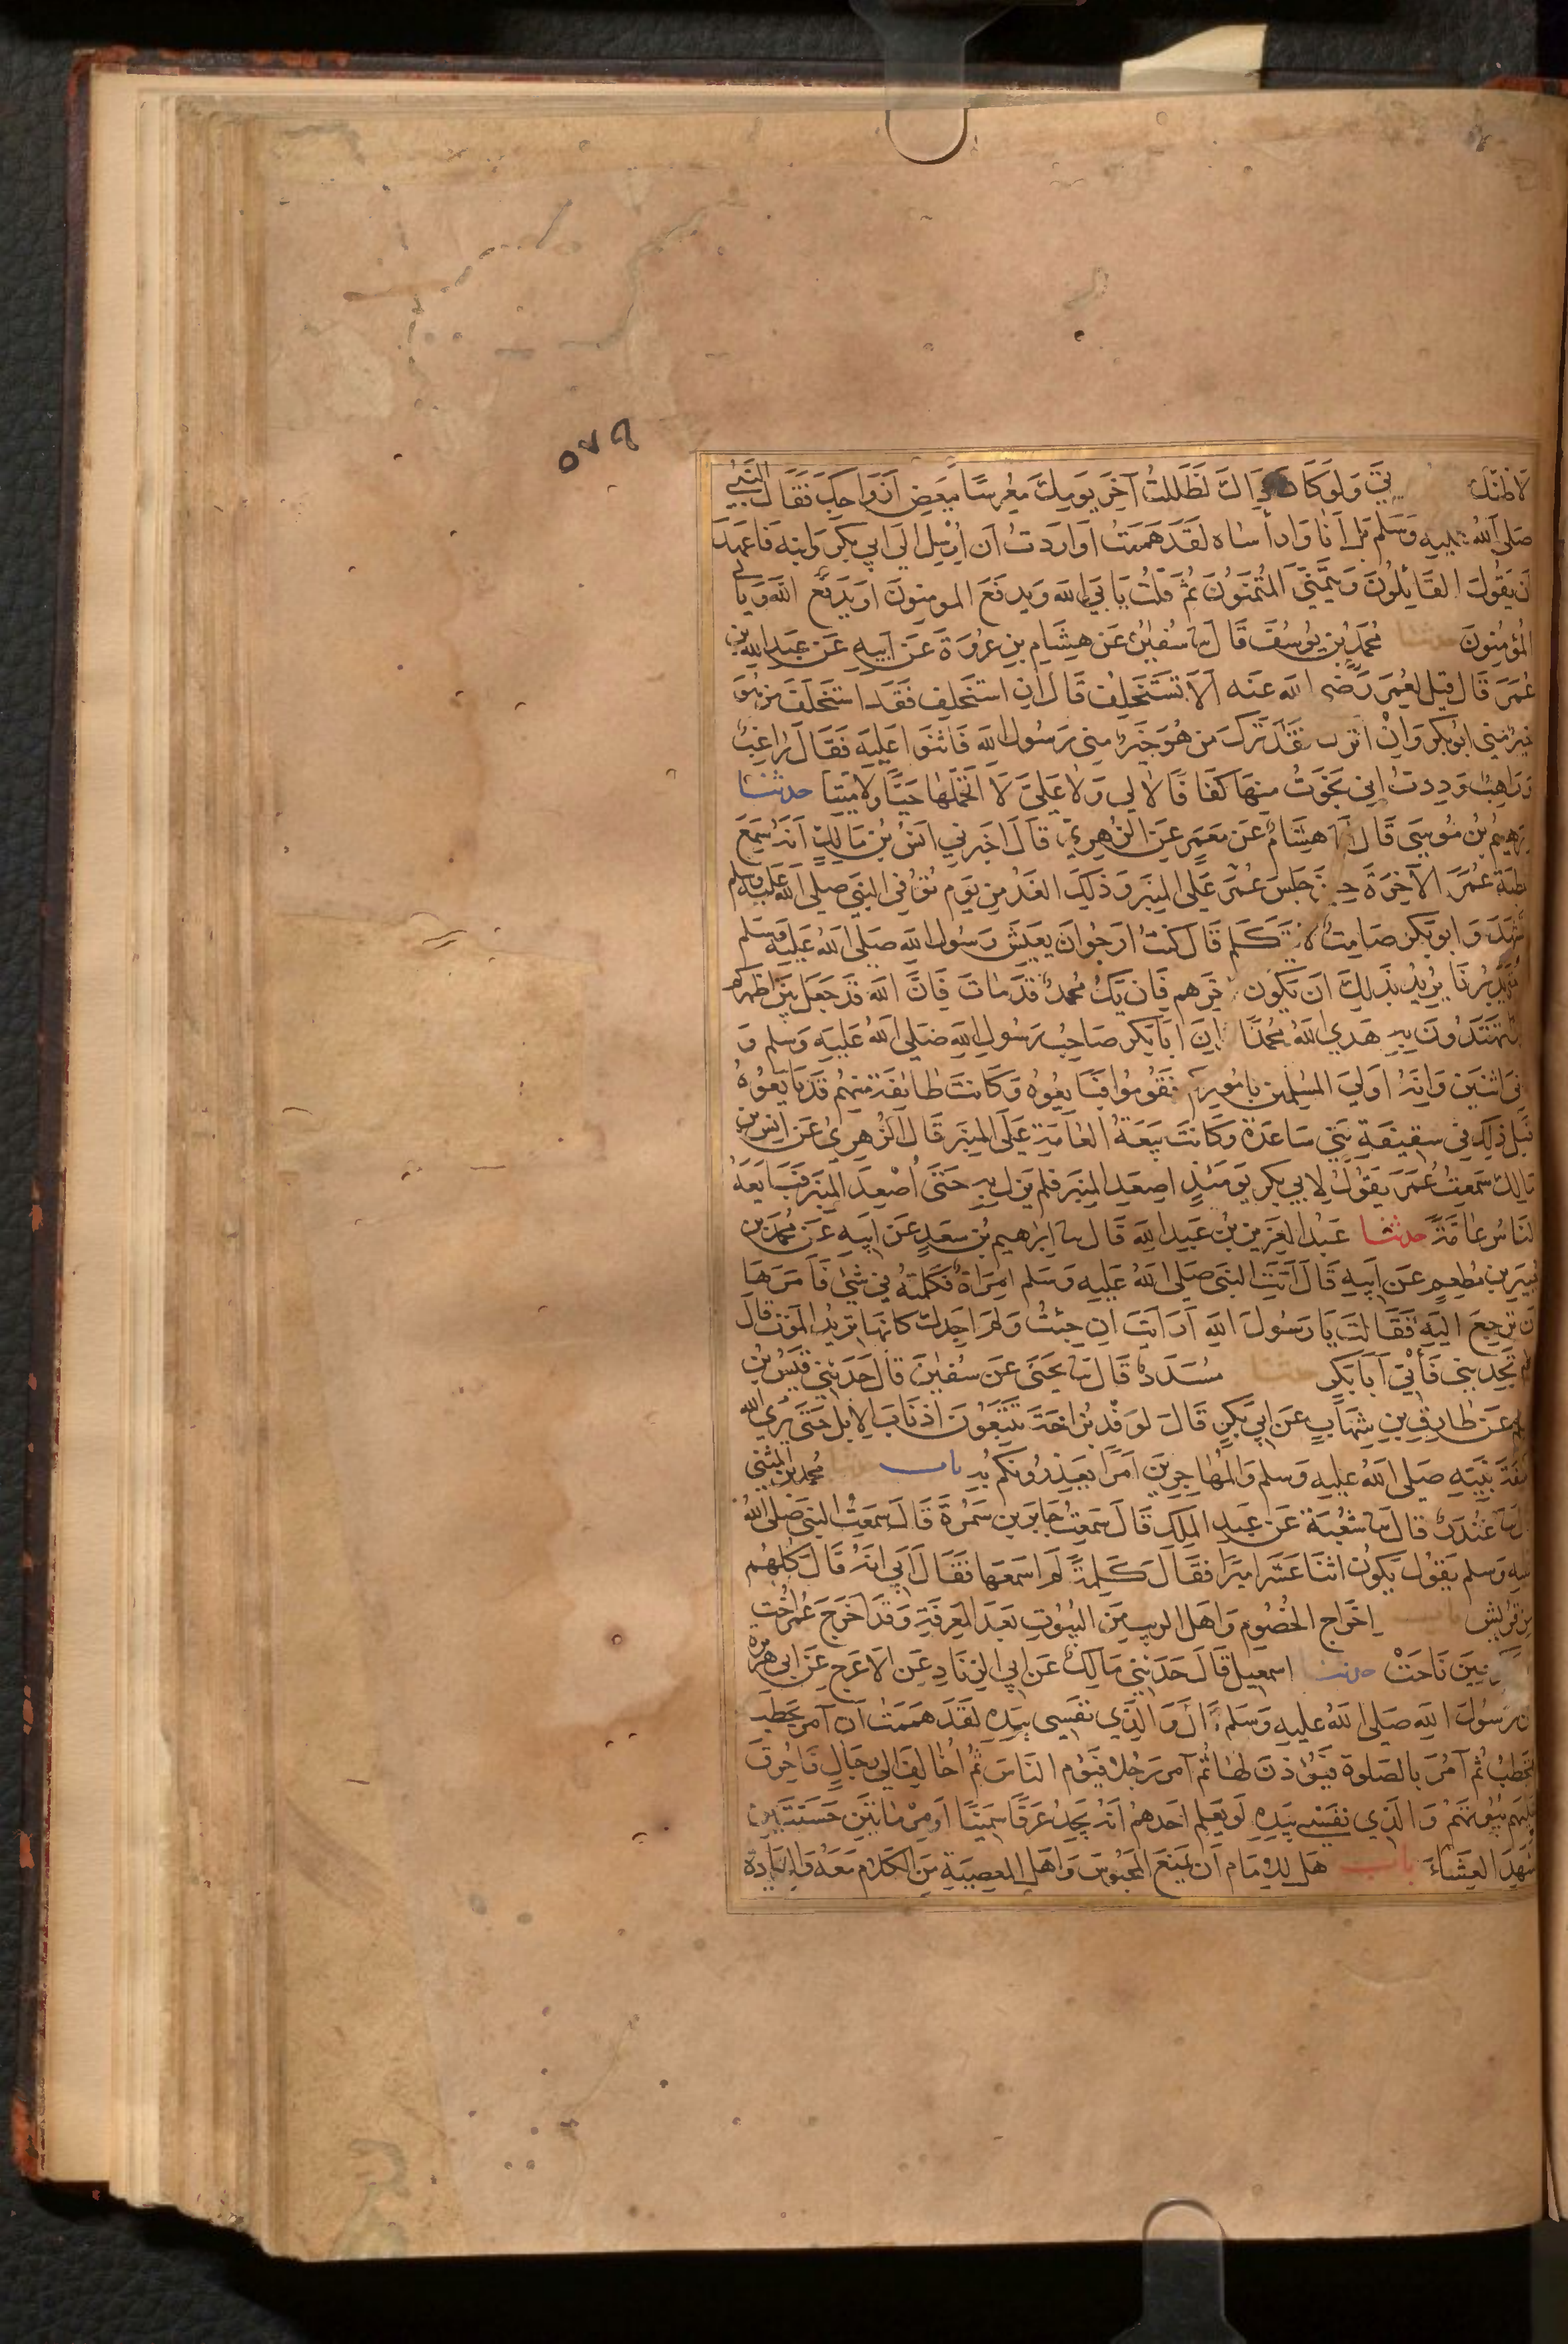 ٥٧٩
لاظنك بي ولو كان ذاك لظللت آخر يومك معرسا ببعض ازواجك فقال النبي
صلى الله عليه وسلم بل انا وارأساه لقد هممت او اردت ان ارسل الى ابي بكر وابنه فاعهد
ان يقول القائلون ويتمنى المتمنون ثم قلت يابى الله ويدفع المومنون او يدفع الله ويابى
المؤمنون حدثنا محمد بن يوسف قال سا سفين عن هشام بن عروة عن ابيه عن عبد الله بن
عمر قال قيل لعمر رضى الله عنه الا تستخلف قال ان استخلف فقد استخلف من هو
خير مني ابو بكر وان اترك فقد ترك من هو خير مني رسول الله فاثنوا عليه فقال راغب
وراهب وددت اني نجوت منها كفافا لا لي ولا علي لا اتحملها حيا ولا ميتا حدثنا
برهيم بن موسى قال انا هشام عن معمر عن الزهري قال اخبرني انس بن مالك انه سمع
خطبة عمر الآخرة حين جلس عمر على المنبر وذلك الغد من يوم توفي النبي صلى الله عليه وسلم
فتشهد وابو بكر صامت لا يتكلم قال كنت ارجو ان يعيش رسول الله صلى الله عليه وسلم
حتى يدبرنا يريد بذلك ان يكون آخرهم فان يك محمد قد مات فان الله قد جعل بين اظهركم
تهتدون به هدى الله محمدا ان ابا بكر صاحب رسول الله صلى الله عليه وسلم و
ثاني اثنين وانه اولى المسلمين باموركم فقوموا فبايعوه وكانت طائفة منهم قد بايعوه
قبل ذلك في سقيفة بني ساعدة وكانت بيعة العامة على المنبر قال الزهري عن انس بن
مالك سمعت عمر يقول لابي بكر يومئذ اصعد المنبر فلم يزل به حتى اصعد المنبر فبايعه
الناس عامة حدثنا عبد العزيز بن عبد الله قال سا ابراهيم بن سعد عن ابيه عن محمد بن
جبير بن مطعم عن ابيه قال اتت النبي صلى الله عليه وسلم امراة فكلمته في شئ فامرها
ان ترجع اليه فقالت يا رسول الله ارايت ان جئت ولم اجدك كانها تريد الموت قال
لم تجديني فأتي ابا بكر حدثنا مسدد قال سا يحيى عن سفين قال حدثني قيس بن
مسلم عن طارق بن شهاب عن ابي بكر قال لوفد بزاخة تتبعون اذناب الابل حتى يرى الله
خليفة نبيه صلى الله عليه وسلم والمهاجرين امرا يعذرونكم به باب حدثنا محمد بن المثنى
قال سا غندر قال سا شعبة عن عبد الملك قال سمعت جابر بن سمرة قال سمعت النبي صلى الله
عليه وسلم يقول يكون اثنا عشر اميرا فقال كلمة لم اسمعها فقال ابي انه قال كلهم
من قريش باب اخراج الخصوم واهل الريب من البيوت بعد المعرفة وقد اخرج عمر اخت
حين ناحت حدثنا اسمعيل قال حدثني مالك عن ابي الزناد عن الاعرج عن ابي هريرة
ان رسول الله صلى الله عليه وسلم قال والذي نفسي بيده لقد هممت ان آمر بحطب
يحتطب ثم آمر بالصلوة فيؤذن لها ثم آمر رجلا فيؤم الناس ثم اخالف الى رجال فاحرق
عليهم بيوتهم والذي نفسي بيده لو يعلم احدهم انه يجد عرقا سمينا او مرماتين حسنتين
لشهد العشاء باب هل للامام ان يمنع المحبوس واهل المعصية من الكلام معه والزيادة